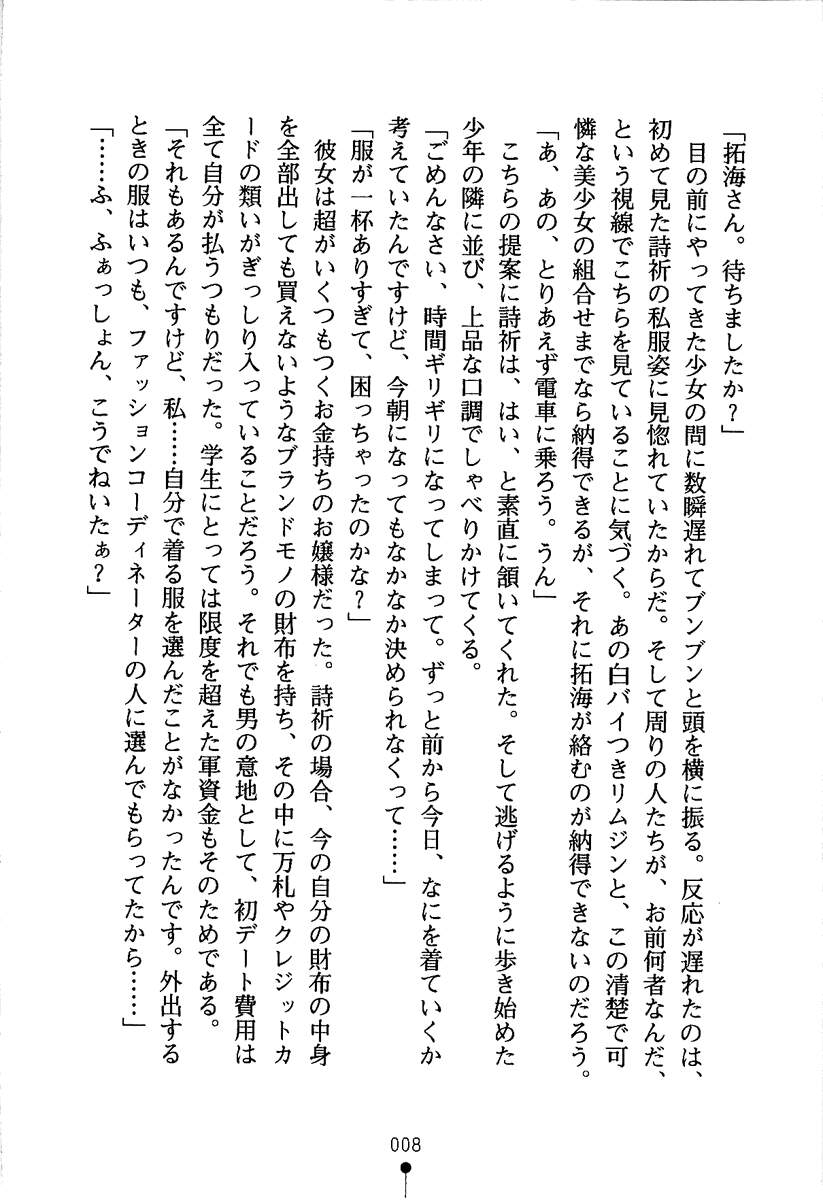 「拓海さん。待ちましたか？」
　目の前にやってきた少女の問に数瞬遅れてブンブンと頭を横に振る。反応が遅れたのは、
初めて見た詩祈の私服姿に見惚れていたからだ。そして周りの人たちが、お前何者なんだ、
という視線でこちらを見ていることに気づく。あの白バイつきリムジンと、この清楚で可
憐な美少女の組合せまでなら納得できるが、それに拓海が絡むのが納得できないのだろう。
「あ、あの、とりあえず電車に乗ろう。うん」
　こちらの提案に詩祈は、はい、と素直に頷いてくれた。そして逃げるように歩き始めた
少年の隣に並び、上品な口調でしゃべりかけてくる。
「ごめんなさい、時間ギリギリになってしまって。ずっと前から今日、なにを着ていくか
考えていたんですけど、今朝になってもなかなか決められなくって……」
「服が一杯ありすぎて、困っちゃったのかな？」
　彼女は超がいくつもつくお金持ちのお嬢様だった。詩祈の場合、今の自分の財布の中身
を全部出しても買えないようなブランドモノの財布を持ち、その中に万札やクレジットカ
ードの類いがぎっしり入っていることだろう。それでも男の意地として、初デート費用は
全て自分が払うつもりだった。学生にとっては限度を超えた軍資金もそのためである。
「それもあるんですけど、私……自分で着る服を選んだことがなかったんです。外出する
ときの服はいつも、ファッションコーディネーターの人に選んでもらってたから……」
「……ふ、ふぁっしょん、こうでねいたぁ？」
008